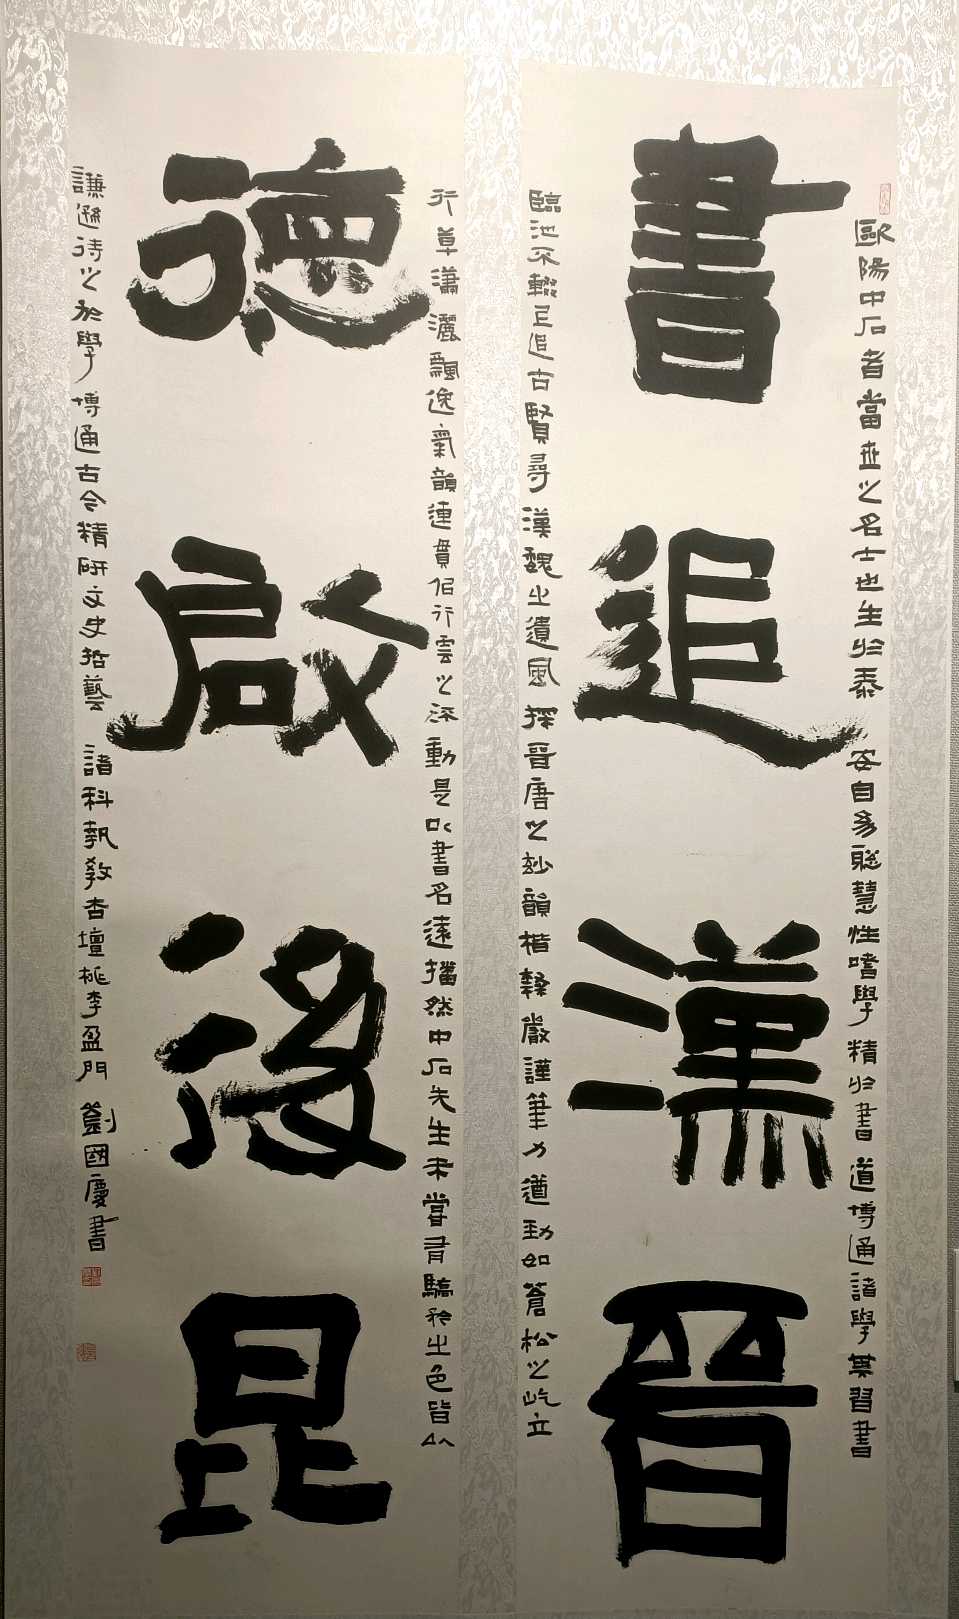 歐陽中石者當世之名士也生於泰安自多聰慧性嗜學精於書道博通諸學其習書
書追漢晉
臨池不輟上追古賢尋漢魏之遺風探晉唐之妙韻楷隸嚴謹筆力遒勁如蒼松之屹立
行草瀟灑飄逸氣韻連貫似行雲之流動是以書名遠播然中石先生未嘗有驕矜之色皆以
德啟後昆
謙遜待之於學博通古今精研文史哲藝諸科執教杏壇桃李盈門劉國慶書